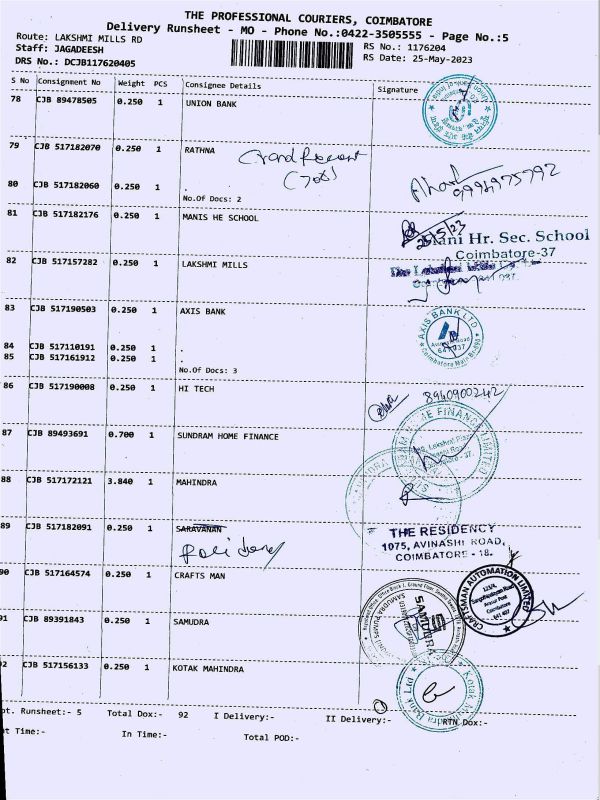 THE PROFESSIONAL COURIERS, COIMBATORE
Delivery Runsheet - MO - Phone No.:0422-3505555 - Page No.:5
Route: LAKSHMI MILLS RD
RS No.: 1176204
Staff: JAGADEESH
RS Date: 25-May-2023
DRS No.: DCJB117620405
S No Consignment No Weight PCS Consignee Details Signature
78 CJB 89478505 0.250 1 UNION BANK
79 CJB 517182070 0.250 1 RATHNA
80 CJB 517182060 0.250 1 .
9994975792
No.Of Docs: 2
81 CJB 517182176 0.250 1 MANIS HE SCHOOL
25/5/23
Mani Hr. Sec. School
Coimbatore-37
82 CJB 517157282 0.250 1 LAKSHMI MILLS
83 CJB 517190503 0.250 1 AXIS BANK
AXIS BANK LTD
84 CJB 517110191 0.250 1 .
85 CJB 517161912 0.250 1 .
No.Of Docs: 3
86 CJB 517190008 0.250 1 HI TECH
8940900242
87 CJB 89493691 0.700 1 SUNDRAM HOME FINANCE
HOME FINANCE LIMITED
88 CJB 517172121 3.840 1 MAHINDRA
89 CJB 517182091 0.250 1 SARAVANAN
THE RESIDENCY
1075, AVINASHI ROAD,
COIMBATORE - 18.
90 CJB 517164574 0.250 1 CRAFTS MAN
CRAFTSMAN AUTOMATION LIMITED
91 CJB 89391843 0.250 1 SAMUDRA
SAMUDRA
92 CJB 517156133 0.250 1 KOTAK MAHINDRA
Kotak Mahindra Bank Ltd
pt. Runsheet:- 5 Total Dox:- 92 I Delivery:- II Delivery:- RTN Dox:-
t Time:- In Time:- Total POD:-